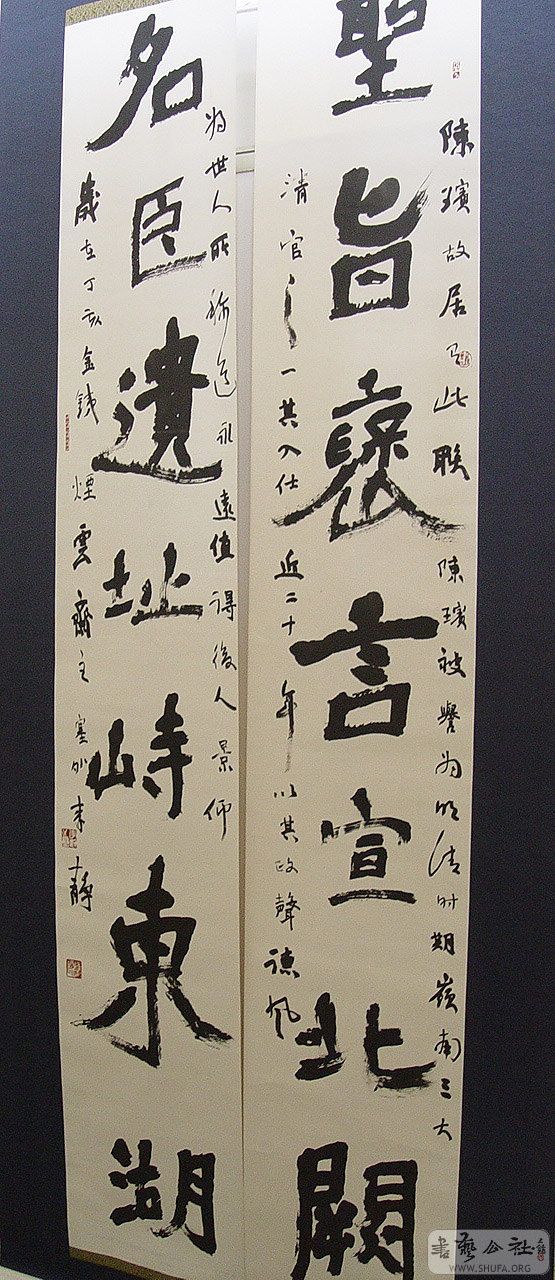 聖旨褒言宣北闕
陳璸故居有此聯 陳璸被譽為明清時期嶺南三大
清官之一其入仕近二十年以其政聲德風
名臣遺址峙東湖
為世人所稱道永遠值得後人景仰
歲在丁亥金錢煙雲齋主塞外來靜
書藝公社
WWW.SHUFA.ORG